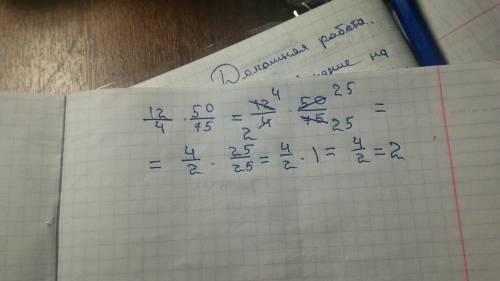 Домашная работа.
на
12/4 · 50/75 = 12⁴/₂4 · 50²⁵/75₂₅ =
= 4/2 · 25/25 = 4/2 · 1 = 4/2 = 2